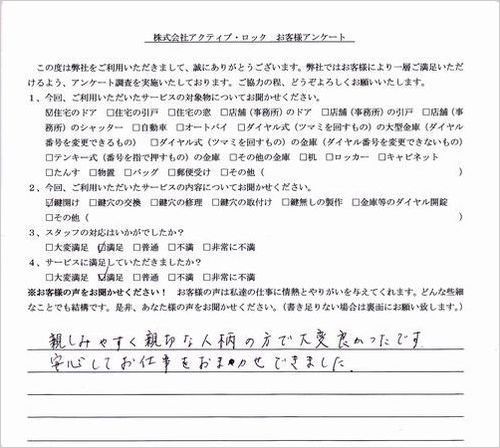 株式会社アクティブ・ロック　お客様アンケート
この度は弊社をご利用いただきまして、誠にありがとうございます。弊社ではお客様により一層ご満足いただ
けるよう、アンケート調査を実施いたしております。ご協力の程、どうぞよろしくお願いいたします。
1、今回、ご利用いただいたサービスの対象物についてお聞かせください。
☑住宅のドア　□住宅の引戸　□住宅の窓　□店舗（事務所）のドア　□店舗（事務所）の引戸　□店舗（事
務所）のシャッター　□自動車　□オートバイ　□ダイヤル式（ツマミを回すもの）の大型金庫（ダイヤル
番号を変更できるもの）　□ダイヤル式（ツマミを回すもの）の金庫（ダイヤル番号を変更できないもの）
□テンキー式（番号を指で押すもの）の金庫　□その他の金庫　□机　□ロッカー　□キャビネット
□たんす　□物置　□バッグ　□郵便受け　□その他（　）
2、今回、ご利用いただいたサービスの内容についてお聞かせください。
☑鍵開け　□鍵穴の交換　□鍵穴の修理　□鍵穴の取付け　□鍵無しの製作　□金庫等のダイヤル開錠
□その他（　）
3、スタッフの対応はいかがでしたか？
□大変満足　☑満足　□普通　□不満　□非常に不満
4、サービスに満足していただきましたか？
□大変満足　☑満足　□普通　□不満　□非常に不満
※お客様の声をお聞かせください！　お客様の声は私達の仕事に情熱とやりがいを与えてくれます。どんな些細
なことでも結構です。是非、あなた様の声をお聞かせください。（書き足りない場合は裏面にお願い致します。）
親しみやすく親切な人柄の方で大変良かったです
安心してお仕事をおまかせできました.